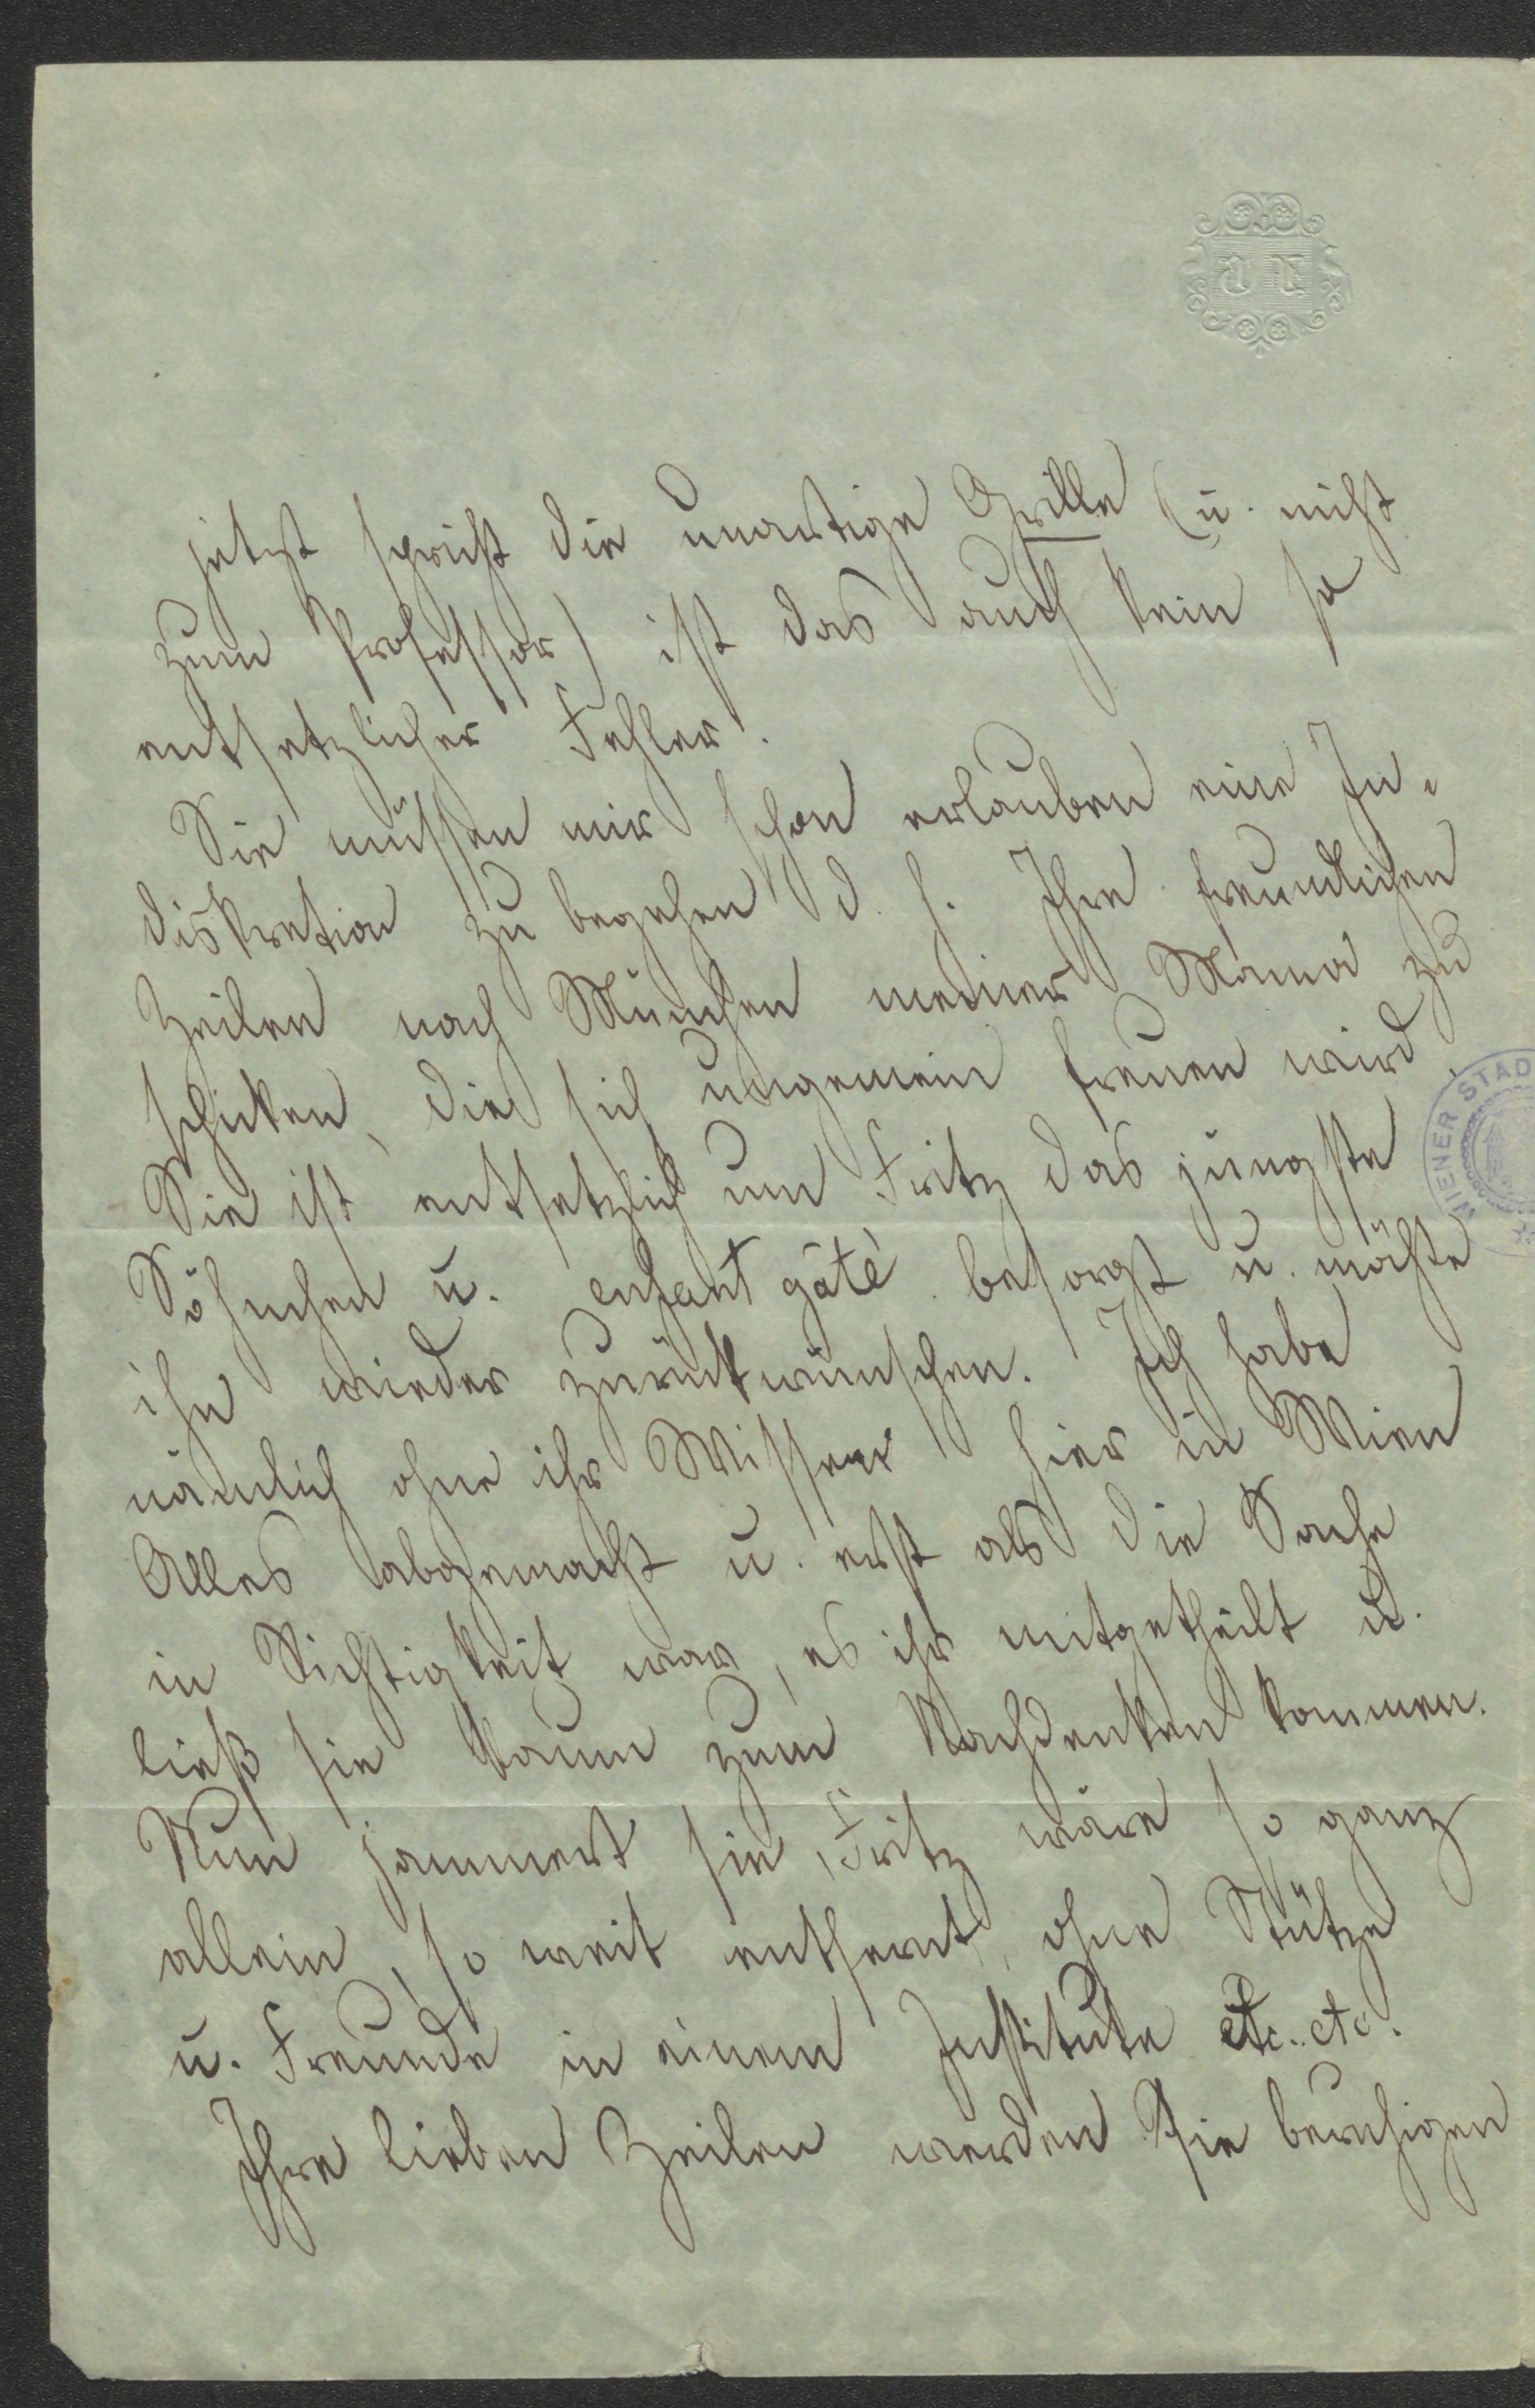 jetzt spricht die unartige Grille (u. nicht
zum Professor) ist das auch kein so
entsetzlicher Fehler.
Sie müssen mir schon erlauben eine In-
diskretion zu begehen d. h. Ihre freundlichen
Zeilen nach München meiner Mama zu
schicken, die sich ungemein freuen wird.
Sie ist entsetzlich um Fritz das jüngste
Söhnchen u. enfant gâté besorgt u. möchte
ihn wieder zurückwünschen. Ich habe
nämlich ohne ihr Wissen hier in Wien
Alles abgemacht u. erst als die Sache
in Richtigkeit war, es ihr mitgetheilt u.
ließ sie kaum zum Nachdenken kommen.
Nun jammert sie, Fritz wäre so ganz
allein, so weit entfernt, ohne Stütze
u. Freunde in einem Institute etc. etc.
Ihre lieben Zeilen werden Sie beruhigen
WIENER STAD